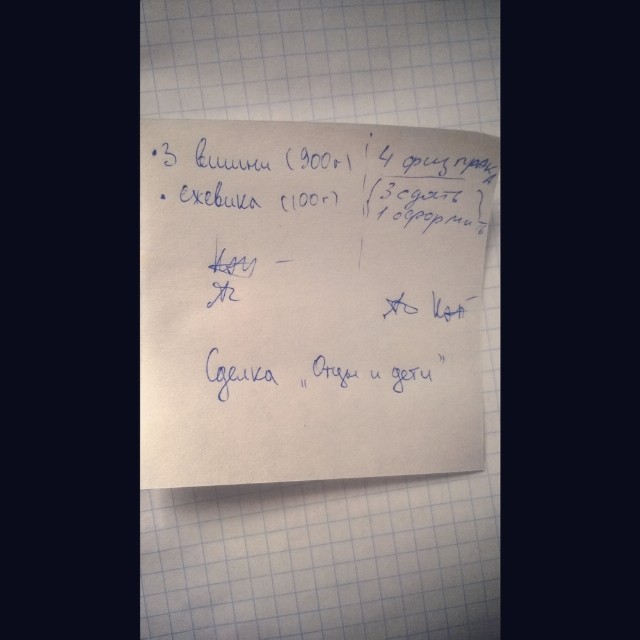 • 3 вишни (900г)
• ежевика (100г)
4 физ
{3 сдать}
1 оформить
Сделка „Отцы и дети"